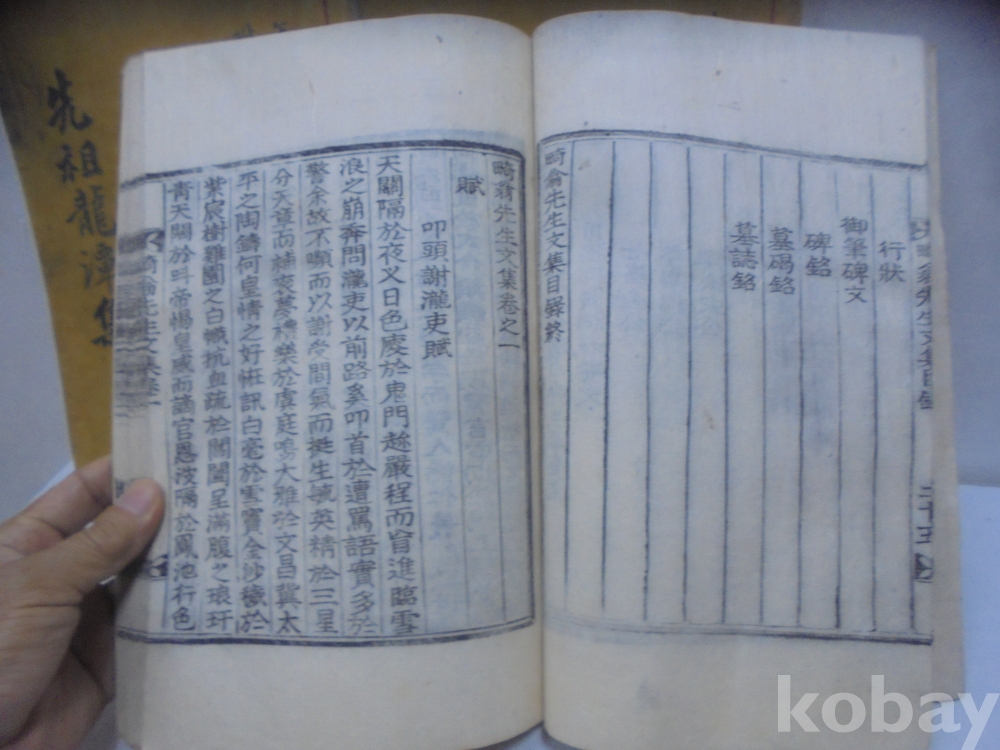 先祖龍潭集
行狀
御筆碑文
碑銘
墓碣銘
墓誌銘
畸翁先生文集目錄終
畸翁先生文集卷之一
賦
叩頭謝瀧吏賦
天關隔於夜叉日色慶於鬼門趂嚴程而冐進臨雪
浪之崩奔問瀧吏以前路奚叩首於遭罵語實多於
警余故不嘲而以謝受間氣而挺生毓英精於三星
分天章而補夜夢禮樂於虞庭鳴大雅於文昌冀太
平之陶鑄何皇情之好
訊白毫於雲竇金沙
於
紫宸樹雞園之白幟抗血疏於閶闔呈滿腹之琅玕
青天關於
帝惕皇威而謫官恩波隔於鳳池行色
畸翁先生文集卷一
畸翁先生文集目錄
二十五
kobay